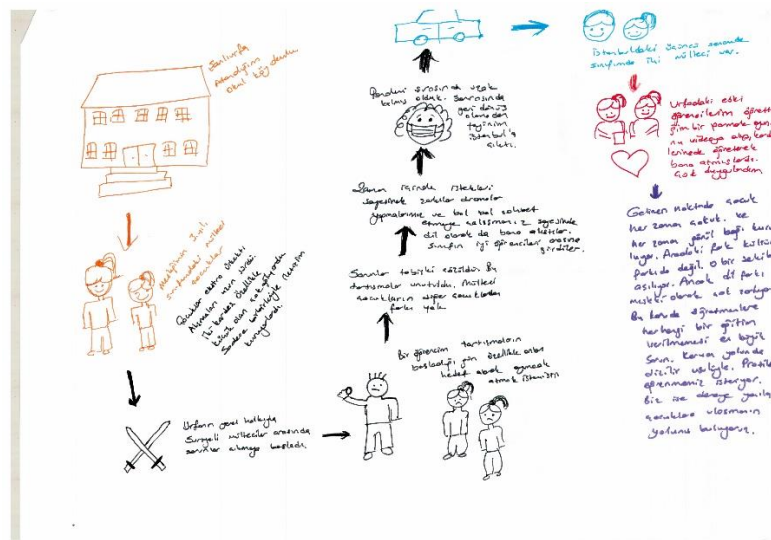 Şanlıurfa
Atandığım
Okul köy
Mesleğimin 3. yılı
sınıfımdaki mülteci
çocuklar
Çocuklar ekstra ürkekti
Alışmaları uzun sürdü
İki kardeş özellikle
küçük olan
Sadece birbiriyle iletişim
kuruyorlardı.
Urfanın yerel halkıyla
Suriyeli mülteciler arasında
sorunlar çıkmaya başladı.
Bir öğrencim tartışmaların
başladığı gün özellikle onları
hedef alarak oyuncak
atmak istemişti
Sorunlar tabiki çözüldü. Bu
tartışmalar unutuldu. Mülteci
çocukların diğer çocuklardan
farkı yok
Zaman içinde istekleri
sayesinde dramalar
yapmalarımız ve bol bol sohbet
etmeye çalışmamız sayesinde
dil olarak da bana
sınıfın iyi öğrencileri arasına
girdiler.
Pandemi sırasında uzak
kalmış olduk. Sonrasında
geri dönüş
olmadan
tayinim
İstanbul'a
çıktı.
İstanbuldaki üçüncü senemde
sınıfımda iki mülteci var.
Urfadaki eski
öğrencilerim öğretti
ğim bir parmak oyun
nu videoya alıp, kard
lerinede öğreterek
bana atmışlardı.
Çok duygulandım
Gelinen noktada çocuk
her zaman çocuk. ve
her zaman gönül bağı kuru
luyor. Aradaki fark kültür
farkıda değil. O bir şekilde
aşılıyor. Ancak dil farkı
olarak çok zorluyor
Bu konuda öğretmenlere
herhangi bir eğitim
verilmemesi en büyük
sorun. Kervan yolunda
dizilir usulüyle. Pratik
öğrenmemiz isteniyor.
Biz ise
çocuklara ulaşmanın
yolunu buluyoruz.